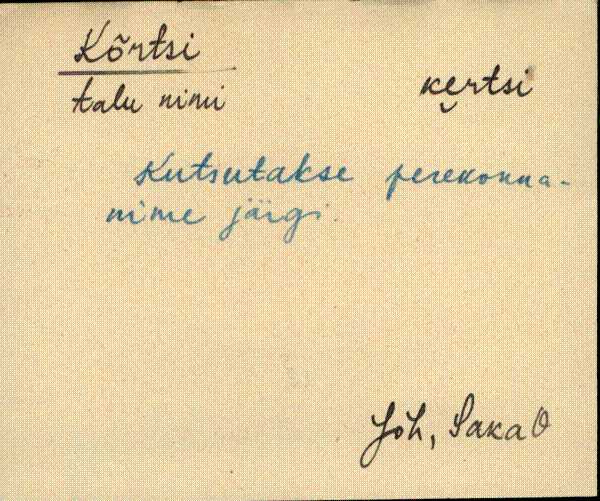 Kõrtsi
talu nimi
ke̮rtsi
Kutsutakse perekonna-
nime järgi.
Joh, Saka O